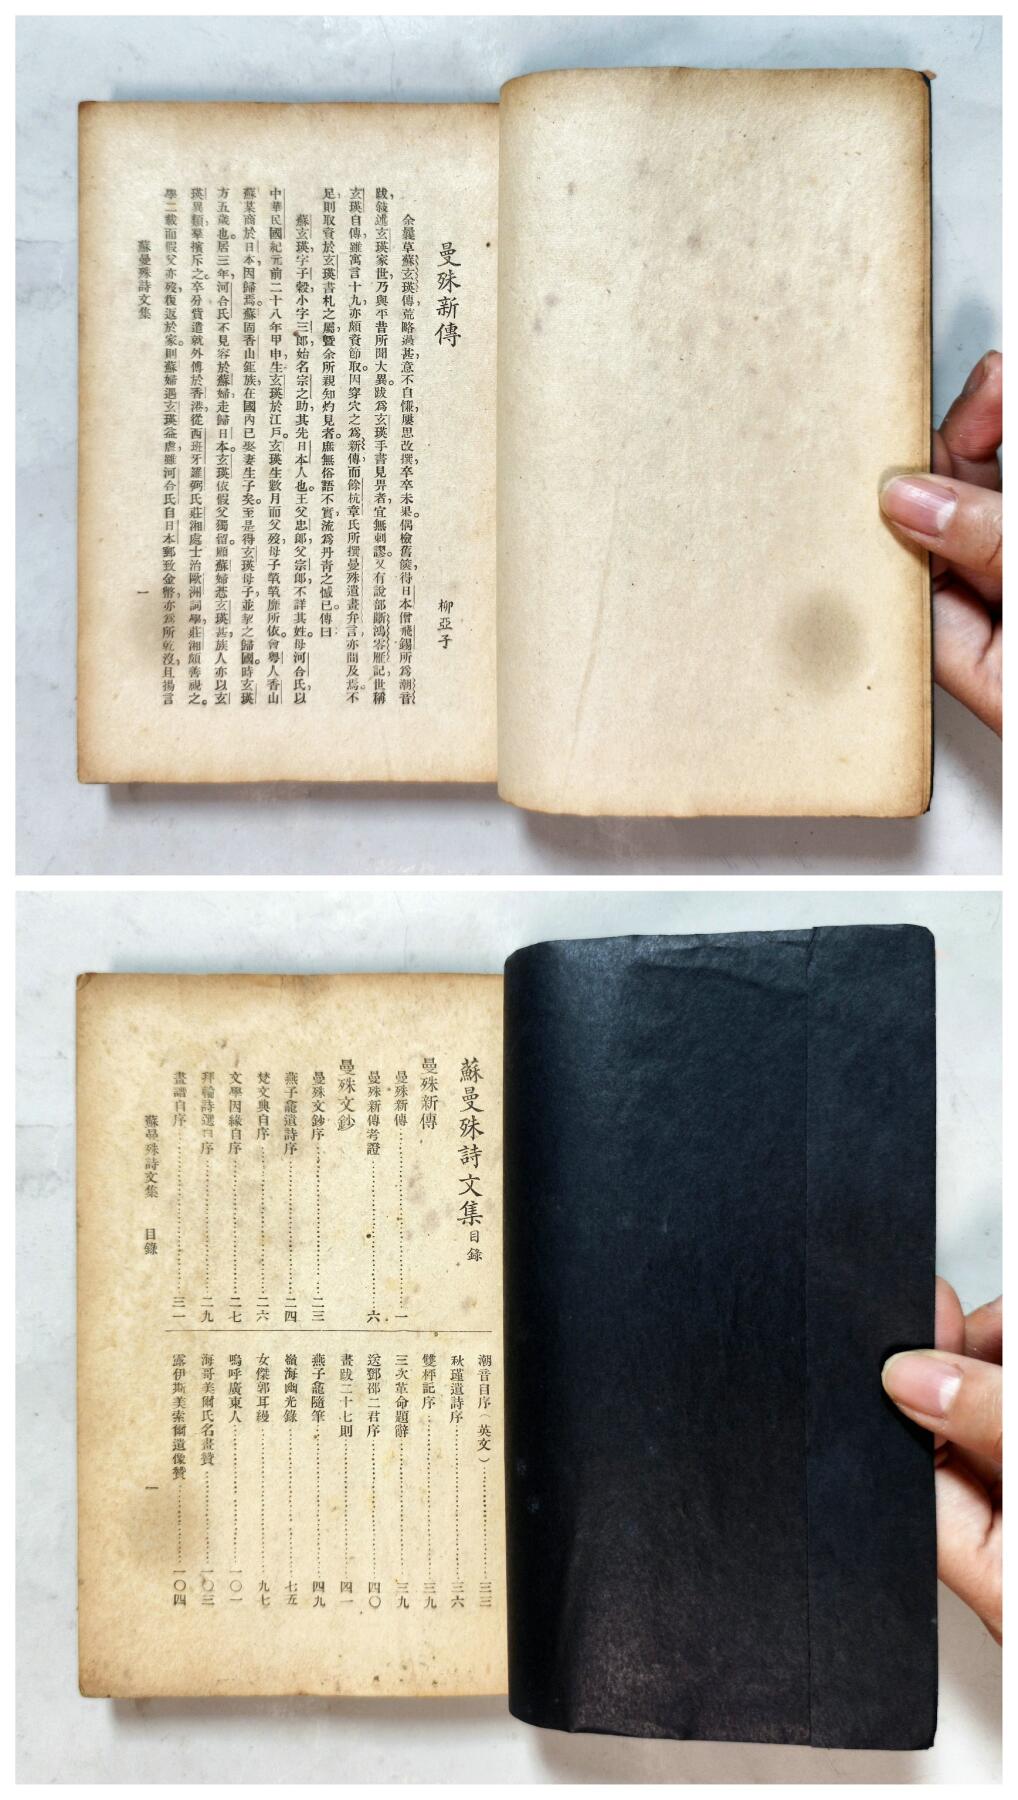 曼殊新傳
柳亞子
余曩草蘇玄瑛傳荒略過甚意不自慊屢思改撰卒卒未果。偶檢舊篋得日本僧飛錫所爲潮音
跋,敍述玄瑛家世,乃與平昔所聞大異。跋爲玄瑛手書見畀者,宜無刺謬。又有說部斷鴻零雁記,世稱
玄瑛自傳,雖寓言十九,亦頗資節取。因穿穴之爲新傳,而餘杭章氏所撰曼殊遺畫弁言,亦間及焉。不
足,則取資於玄瑛書札之屬,曁余所親知灼見者。庶無俗語不實,流爲丹靑之憾已。傳曰:
蘇玄瑛,字子穀,小字三郎,始名宗之助,其先日本人也。王父忠郎,父宗郎,不詳其姓。母河合氏,以
中華民國紀元前二十八年甲申,生玄瑛於江戶。玄瑛生數月而父歿,母子煢煢靡所依。會粤人香山
蘇某商於日本,因歸焉。蘇固香山鉅族,在國內已娶妻生子矣。至是得玄瑛母子,並挈之歸國。時玄瑛
方五歲也。居三年,河合氏不見容於蘇婦,走歸日本。玄瑛依假父獨留。顧蘇婦惎玄瑛甚,族人亦以玄
瑛異類,羣擯斥之。卒分貲遣就外傅於香港,從西班牙羅弼氏莊湘處士治歐洲詞學,莊湘頗善視之。
學二載而假父亦歿,復返於家。則蘇婦遇玄瑛益虐,雖河合氏自日本郵致金幣,亦爲所乾沒,且揚言
蘇曼殊詩文集
一
蘇曼殊詩文集目錄
曼殊新傳
曼殊新傳……一
曼殊新傳考證……六
曼殊文鈔
曼殊文鈔序……二三
燕子龕遺詩序……二四
梵文典自序……二六
文學因緣自序……二七
拜輪詩選自序……二九
畫譜自序……三一
潮音自序(英文)……三三
秋瑾遺詩序……三六
雙枰記序……三九
三次革命題辭……三九
送鄧邵二君序……四〇
畫跋二十七則……四一
燕子龕隨筆……四九
嶺海幽光錄……七五
女傑郭耳縵……九七
嗚呼廣東人……一〇一
海哥美爾氏名畫贊……一〇三
露伊斯美索爾遺像贊……一〇四
蘇曼殊詩文集 目錄
一